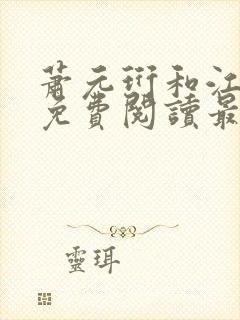 蕭元衍和江
免費閱讀最
靈珥